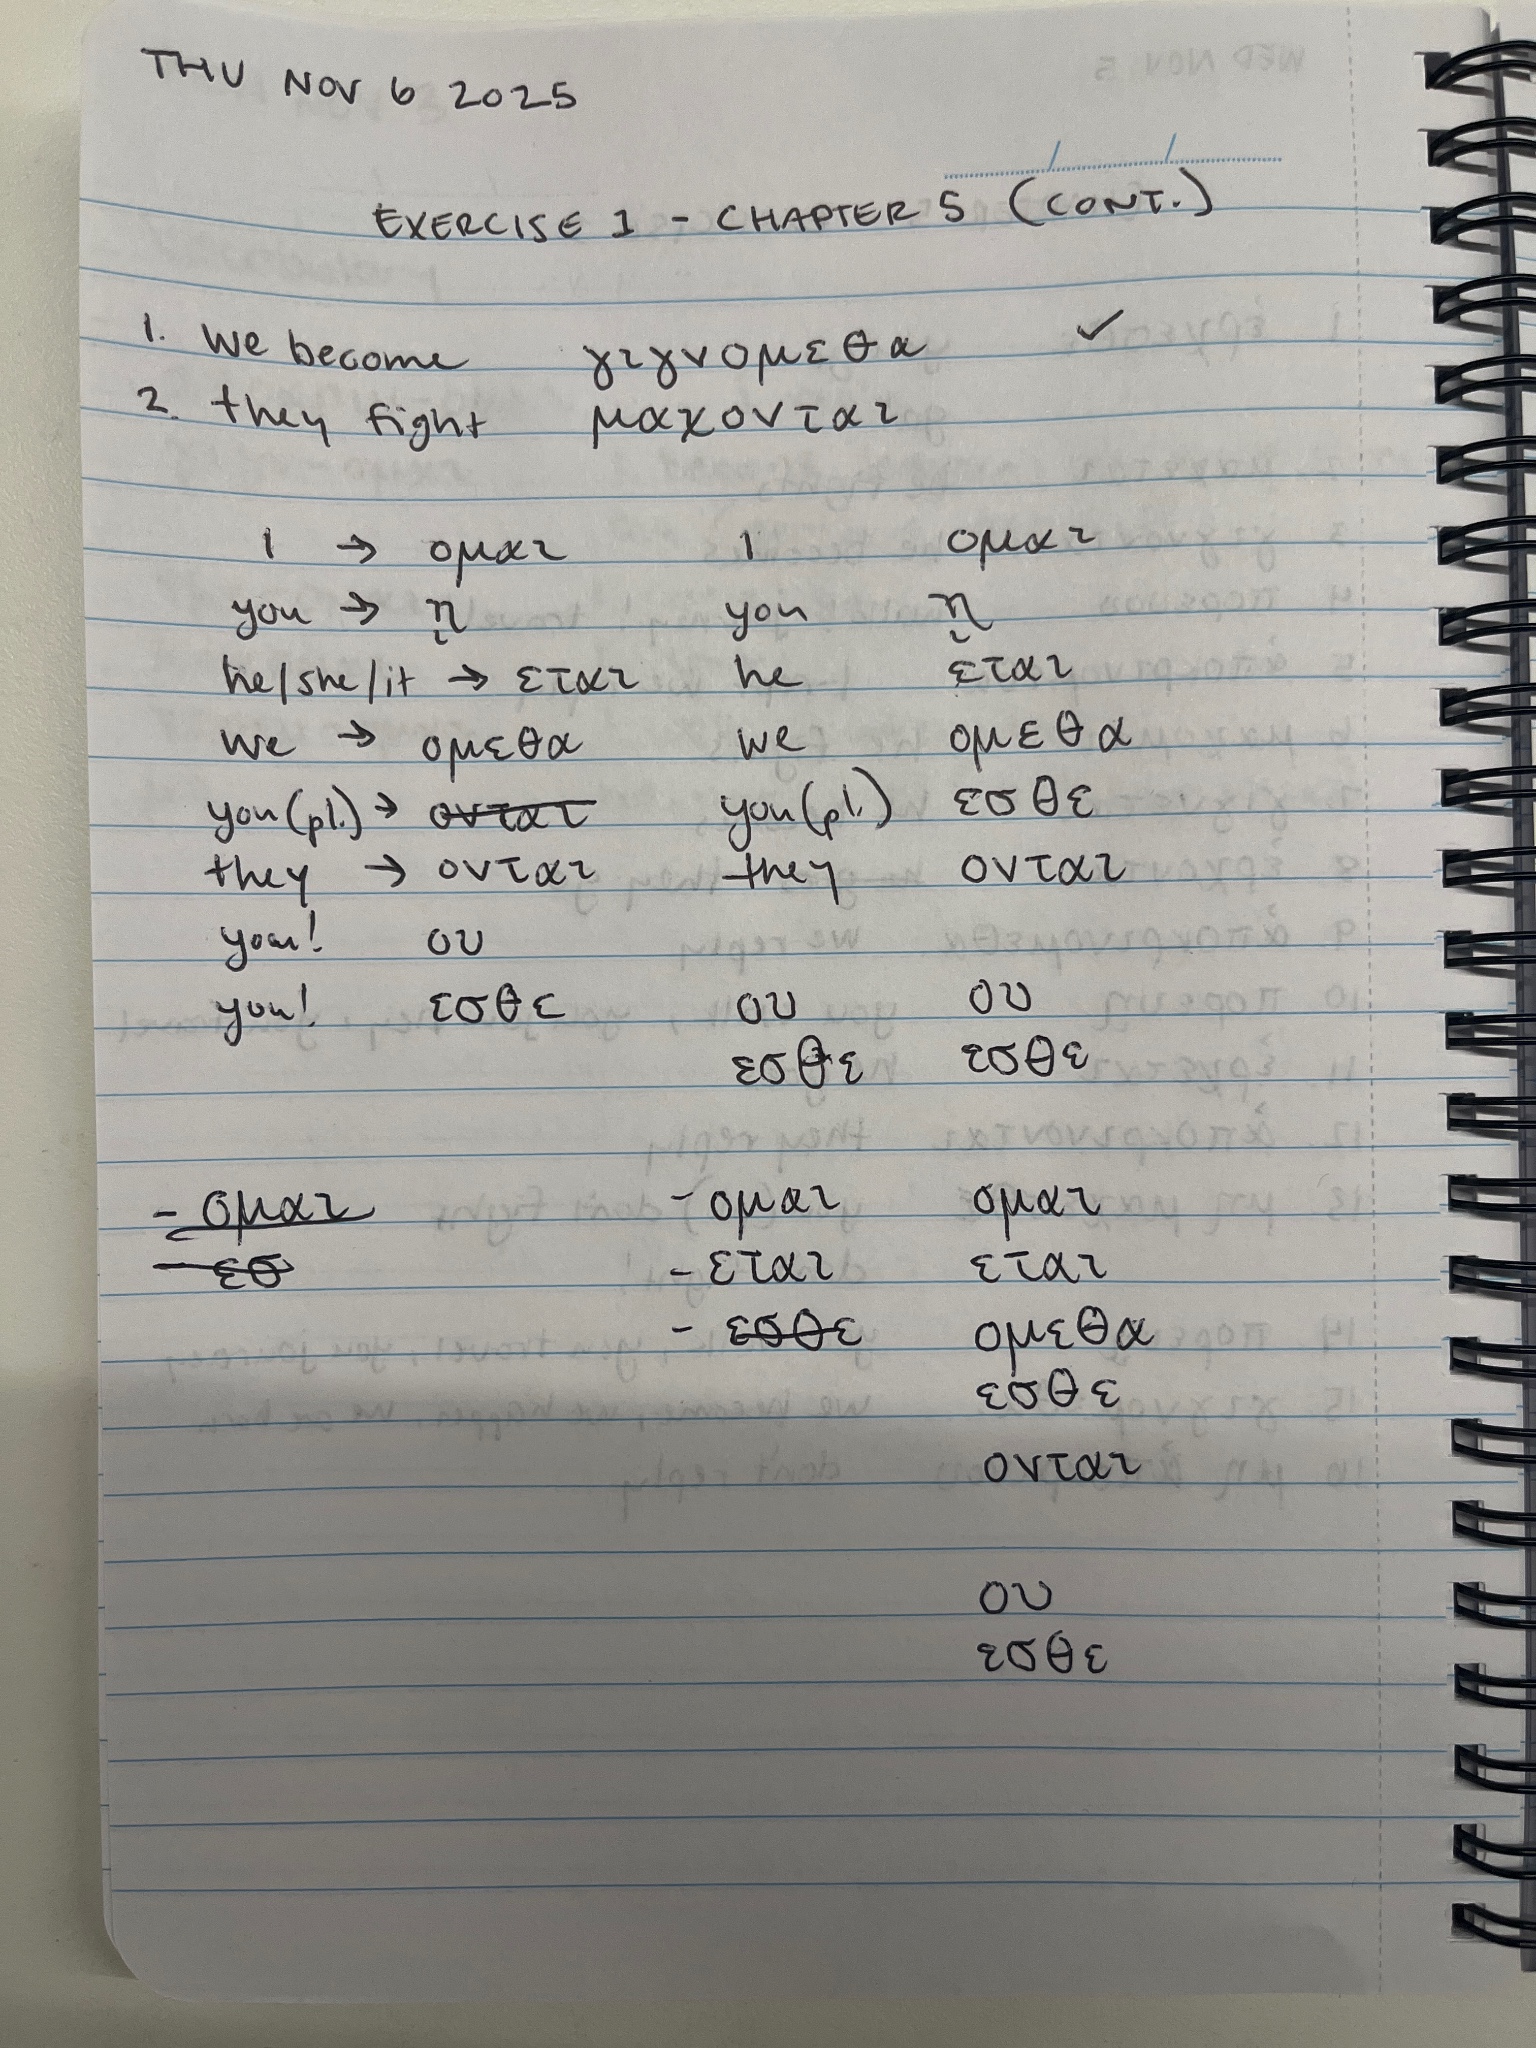 THU NOV 6 2025
EXERCISE 1 - CHAPTER 5 (CONT.)
1. we become γιγνομεθα ✓
2. they fight μαχονται
I → ομαι I ομαι
you → ῃ you ῃ
he/she/it → εται he εται
we → ομεθα we ομεθα
you (pl.) → ονται you (pl.) εσθε
they → ονται they ονται
you! ου
you! εσθε ου ου
εσθε εσθε
- ομαι - ομαι ομαι
- εσ - εται εται
- εσθε ομεθα
εσθε
ονται
ου
εσθε